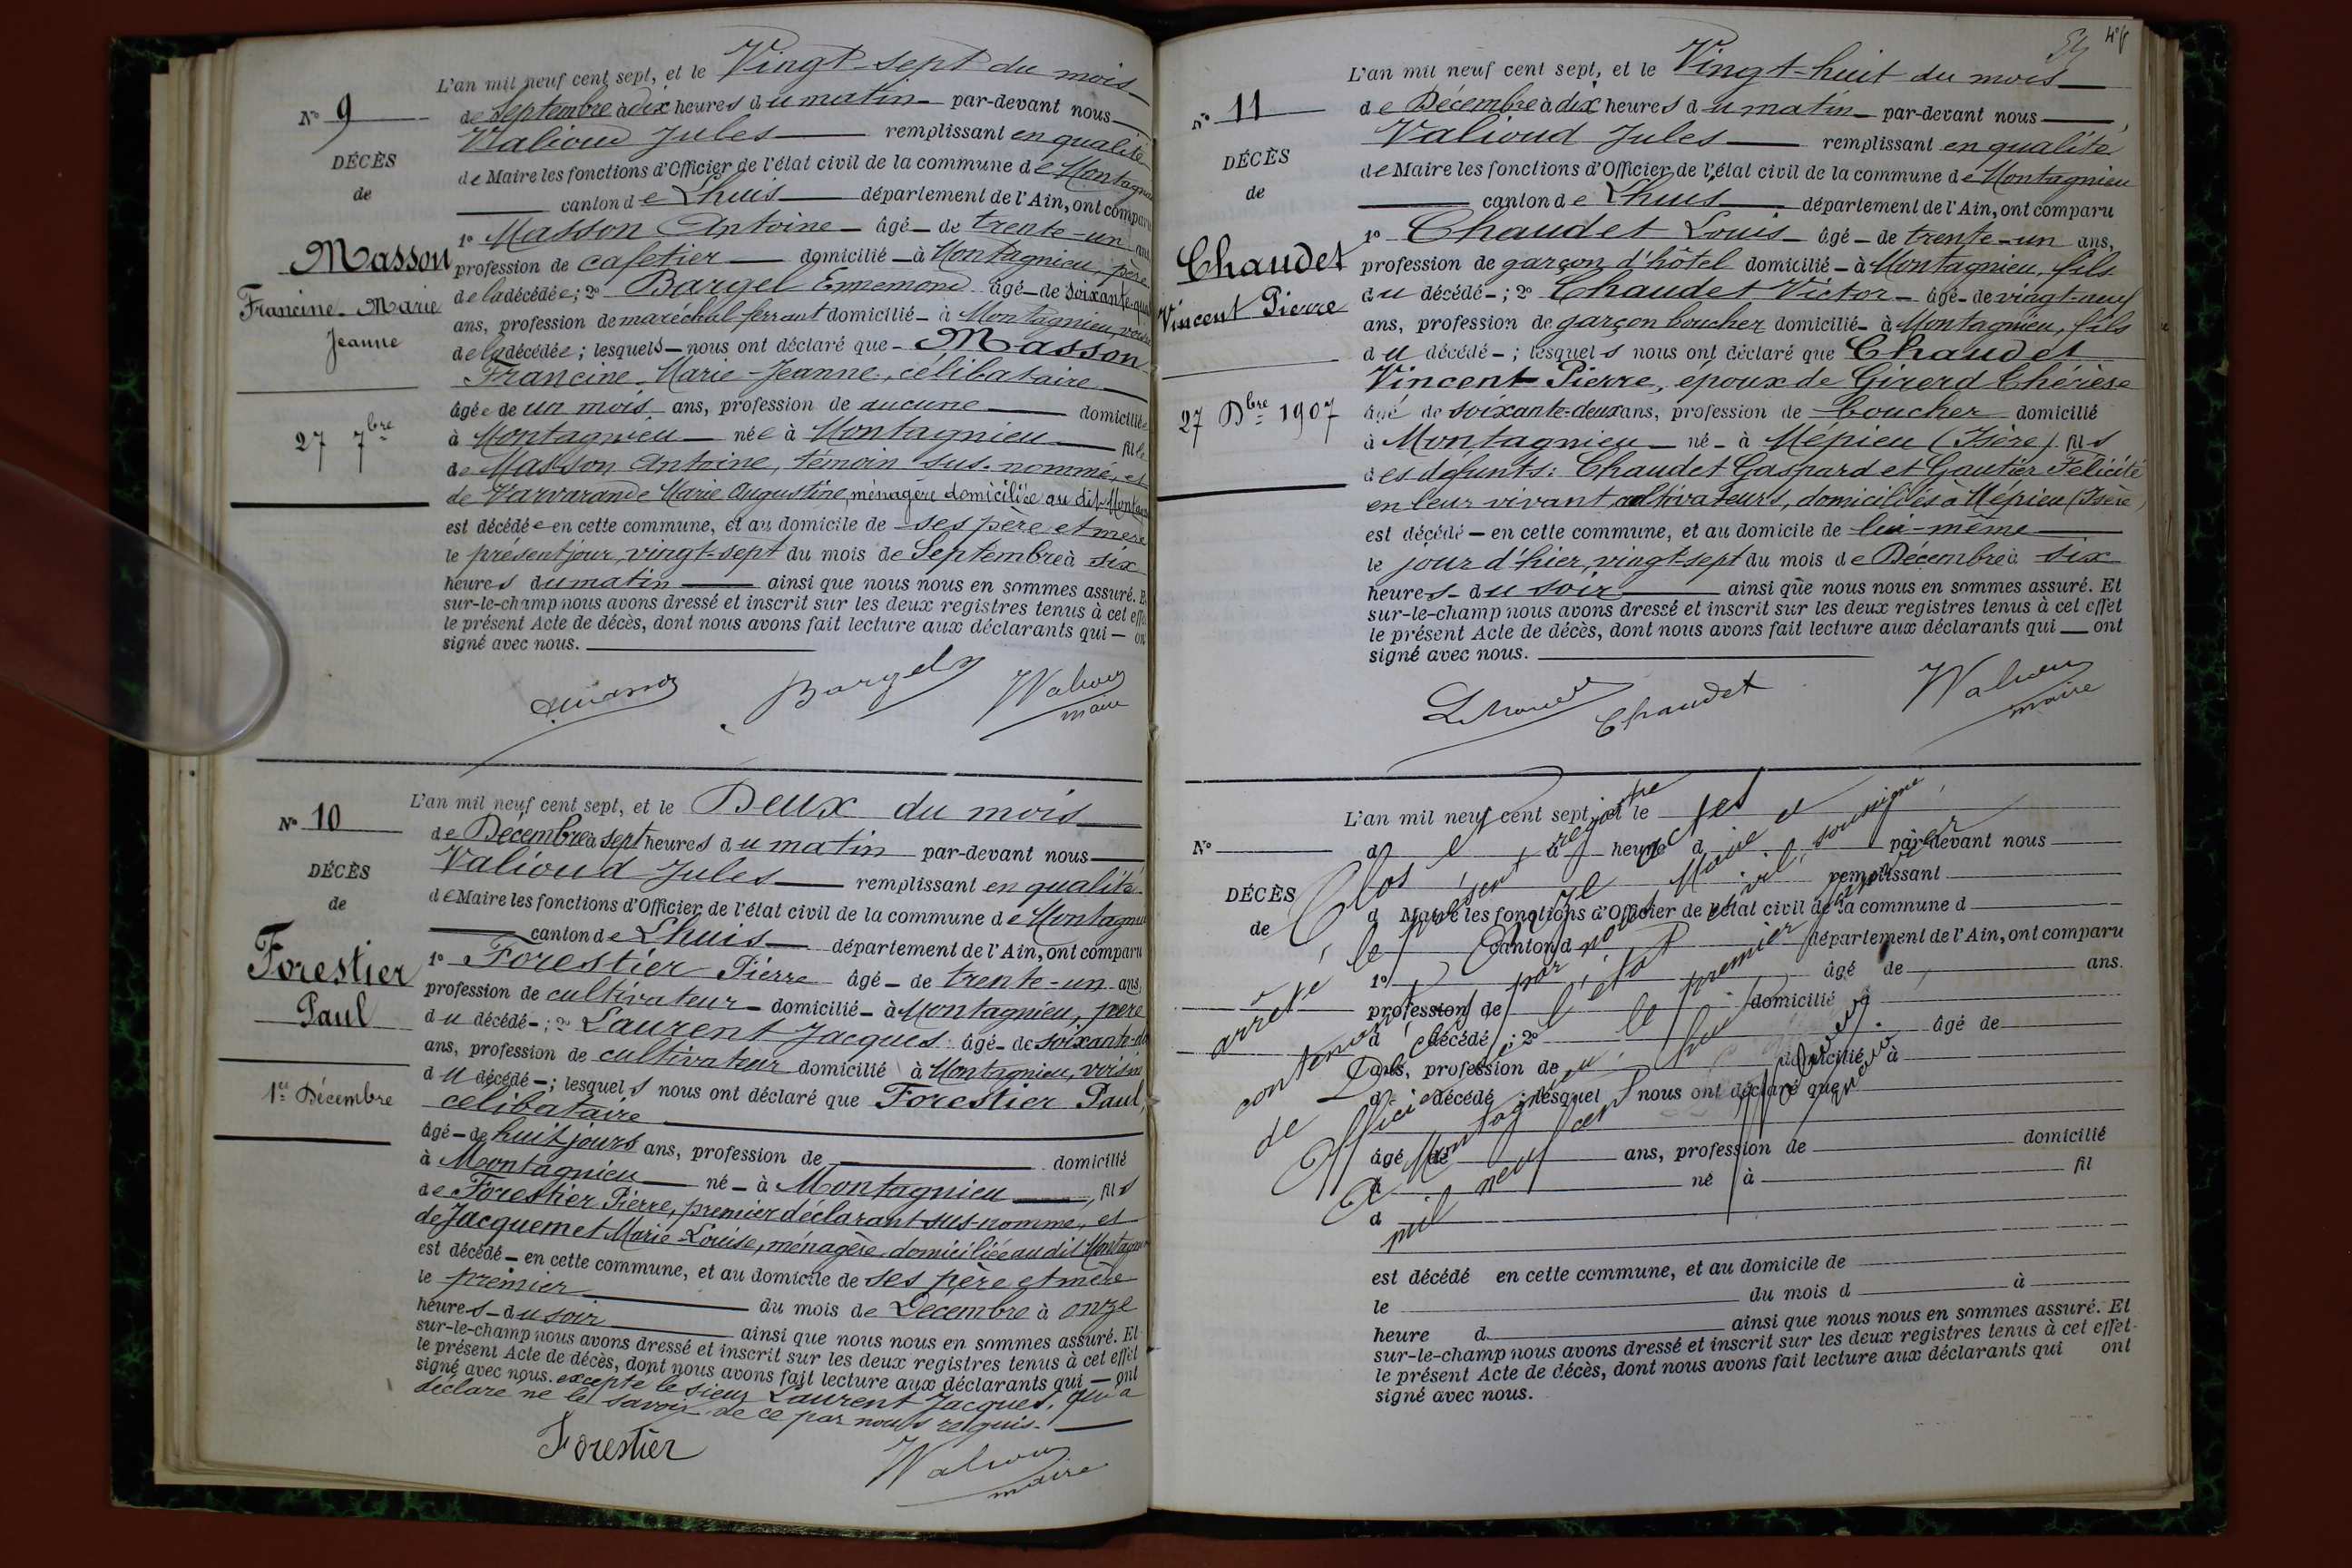 L'an mil neuf cent sept, et le Vingt-sept du mois
No 9
de Septembre à dix heures du matin par-devant nous
Valioud Jules remplissant en qualité
DÉCÈS
de Maire les fonctions d'Officier de l'état civil de la commune de Montagnieu
de
canton de Lhuis département de l'Ain, ont comparu
1o Masson Antoine âgé de trente-un ans
Masson
profession de cafetier domicilié à Montagnieu, père
Francine Marie
de la décédée; 2o Bargel Ennemond âgé de soixante-quat
ans, profession de maréchal ferrant domicilié à Montagnieu, voisin
Jeanne
de la décédée; lesquels nous ont déclaré que Masson
Francine Marie-Jeanne, célibataire
âgée de un mois ans, profession de aucune domiciliée
27 7bre
à Montagnieu née à Montagnieu fille
de Masson Antoine, témoin sus-nommé, et
de Varvarande Marie Augustine, ménagère domiciliée au dit Montagnieu
est décédée en cette commune, et au domicile de ses père et mère
le présent jour, vingt-sept du mois de Septembre à six
heures du matin ainsi que nous nous en sommes assuré. Et
sur-le-champ nous avons dressé et inscrit sur les deux registres tenus à cet effet
le présent Acte de décès, dont nous avons fait lecture aux déclarants qui ont
signé avec nous.
Bargel Valioud
maire
L'an mil neuf cent sept, et le Deux du mois
No 10
de Décembre à sept heures du matin par-devant nous
Valioud Jules remplissant en qualité
DÉCÈS
de Maire les fonctions d'Officier de l'état civil de la commune de Montagnieu
de
canton de Lhuis département de l'Ain, ont comparu
Forestier
1o Forestier Pierre âgé de trente-un ans,
profession de cultivateur domicilié à Montagnieu, père
Paul
du décédé; 2o Laurent Jacques âgé de soixante-
ans, profession de cultivateur domicilié à Montagnieu, voisin
du décédé; lesquels nous ont déclaré que Forestier Paul,
1er Décembre
célibataire
âgé de huit jours ans, profession de domicilié
à Montagnieu né à Montagnieu, fils
de Forestier Pierre, premier déclarant sus-nommé, et
de Jacquemet Marie-Louise, ménagère domiciliée au dit Montagnieu
est décédé en cette commune, et au domicile de ses père et mère
le premier du mois de Décembre à onze
heures du soir ainsi que nous nous en sommes assuré. Et
sur-le-champ nous avons dressé et inscrit sur les deux registres tenus à cet effet
le présent Acte de décès, dont nous avons fait lecture aux déclarants qui ont
signé avec nous. excepté le sieur Laurent Jacques, qui a
déclaré ne le savoir de ce par nous requis.
Forestier Valioud
maire
L'an mil neuf cent sept, et le Vingt-huit du mois
No 11
de Décembre à dix heures du matin par-devant nous
Valioud Jules remplissant en qualité
DÉCÈS
de Maire les fonctions d'Officier de l'état civil de la commune de Montagnieu
de
canton de Lhuis département de l'Ain, ont comparu
1o Chaudet Louis âgé de trente-un ans,
Chaudet
profession de garçon d'hôtel domicilié à Montagnieu, fils
du décédé; 2o Chaudet Victor âgé de vingt-neuf
Vincent Pierre
ans, profession de garçon boucher domicilié à Montagnieu, fils
du décédé; lesquels nous ont déclaré que Chaudet
Vincent Pierre, époux de Girerd Thérèse
27 Dbre 1907
âgé de soixante-deux ans, profession de boucher domicilié
à Montagnieu né à Mépieu (Isère) fils
des défunts: Chaudet Gaspard et Gautier Félicité
en leur vivant cultivateurs, domiciliés à Mépieu (Isère)
est décédé en cette commune, et au domicile de lui-même
le jour d'hier, vingt-sept du mois de Décembre à six
heures du soir ainsi que nous nous en sommes assuré. Et
sur-le-champ nous avons dressé et inscrit sur les deux registres tenus à cet effet
le présent Acte de décès, dont nous avons fait lecture aux déclarants qui ont
signé avec nous.
Chaudet Valioud
maire
L'an mil neuf cent sept, et le
No
à heure d par-devant nous
remplissant
DÉCÈS
d Maire les fonctions d'Officier de l'état civil de la commune d
de
canton d département de l'Ain, ont comparu
1o âgé de ans.
profession de domicilié
d décédé; 2o âgé de
ans, profession de domicilié à
d décédé; lesquel nous ont déclaré que
âgé de ans, profession de domicilié
à né à fil
d
est décédé en cette commune, et au domicile de
le du mois d à
heure d ainsi que nous nous en sommes assuré. Et
sur-le-champ nous avons dressé et inscrit sur les deux registres tenus à cet effet
le présent Acte de décès, dont nous avons fait lecture aux déclarants qui ont
signé avec nous.
Clos et
arrêté le présent registre
contenant onze actes
de Décès, par nous Maire et
Officier de l'état civil, soussigné,
à Montagnieu, le premier janvier
mil neuf cent huit.